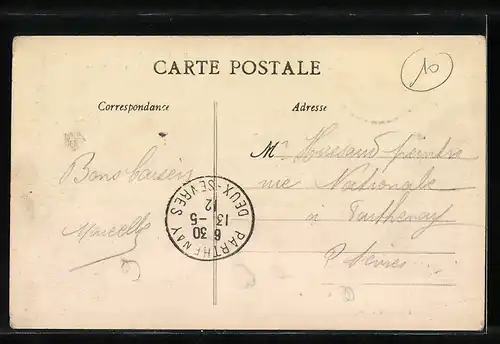 CARTE POSTALE
10
Correspondance
Adresse
Bons baisers
Marcelle
Mr
rue Nationale
à Parthenay
2 Sèvres
PARTHENAY
6 30
13 -5
12
DEUX-SEVRES